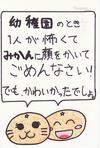 幼稚園のとき
1人が怖くて
みかんに顔をかいて
ごめんなさい!
でも、かわいかったでしょ